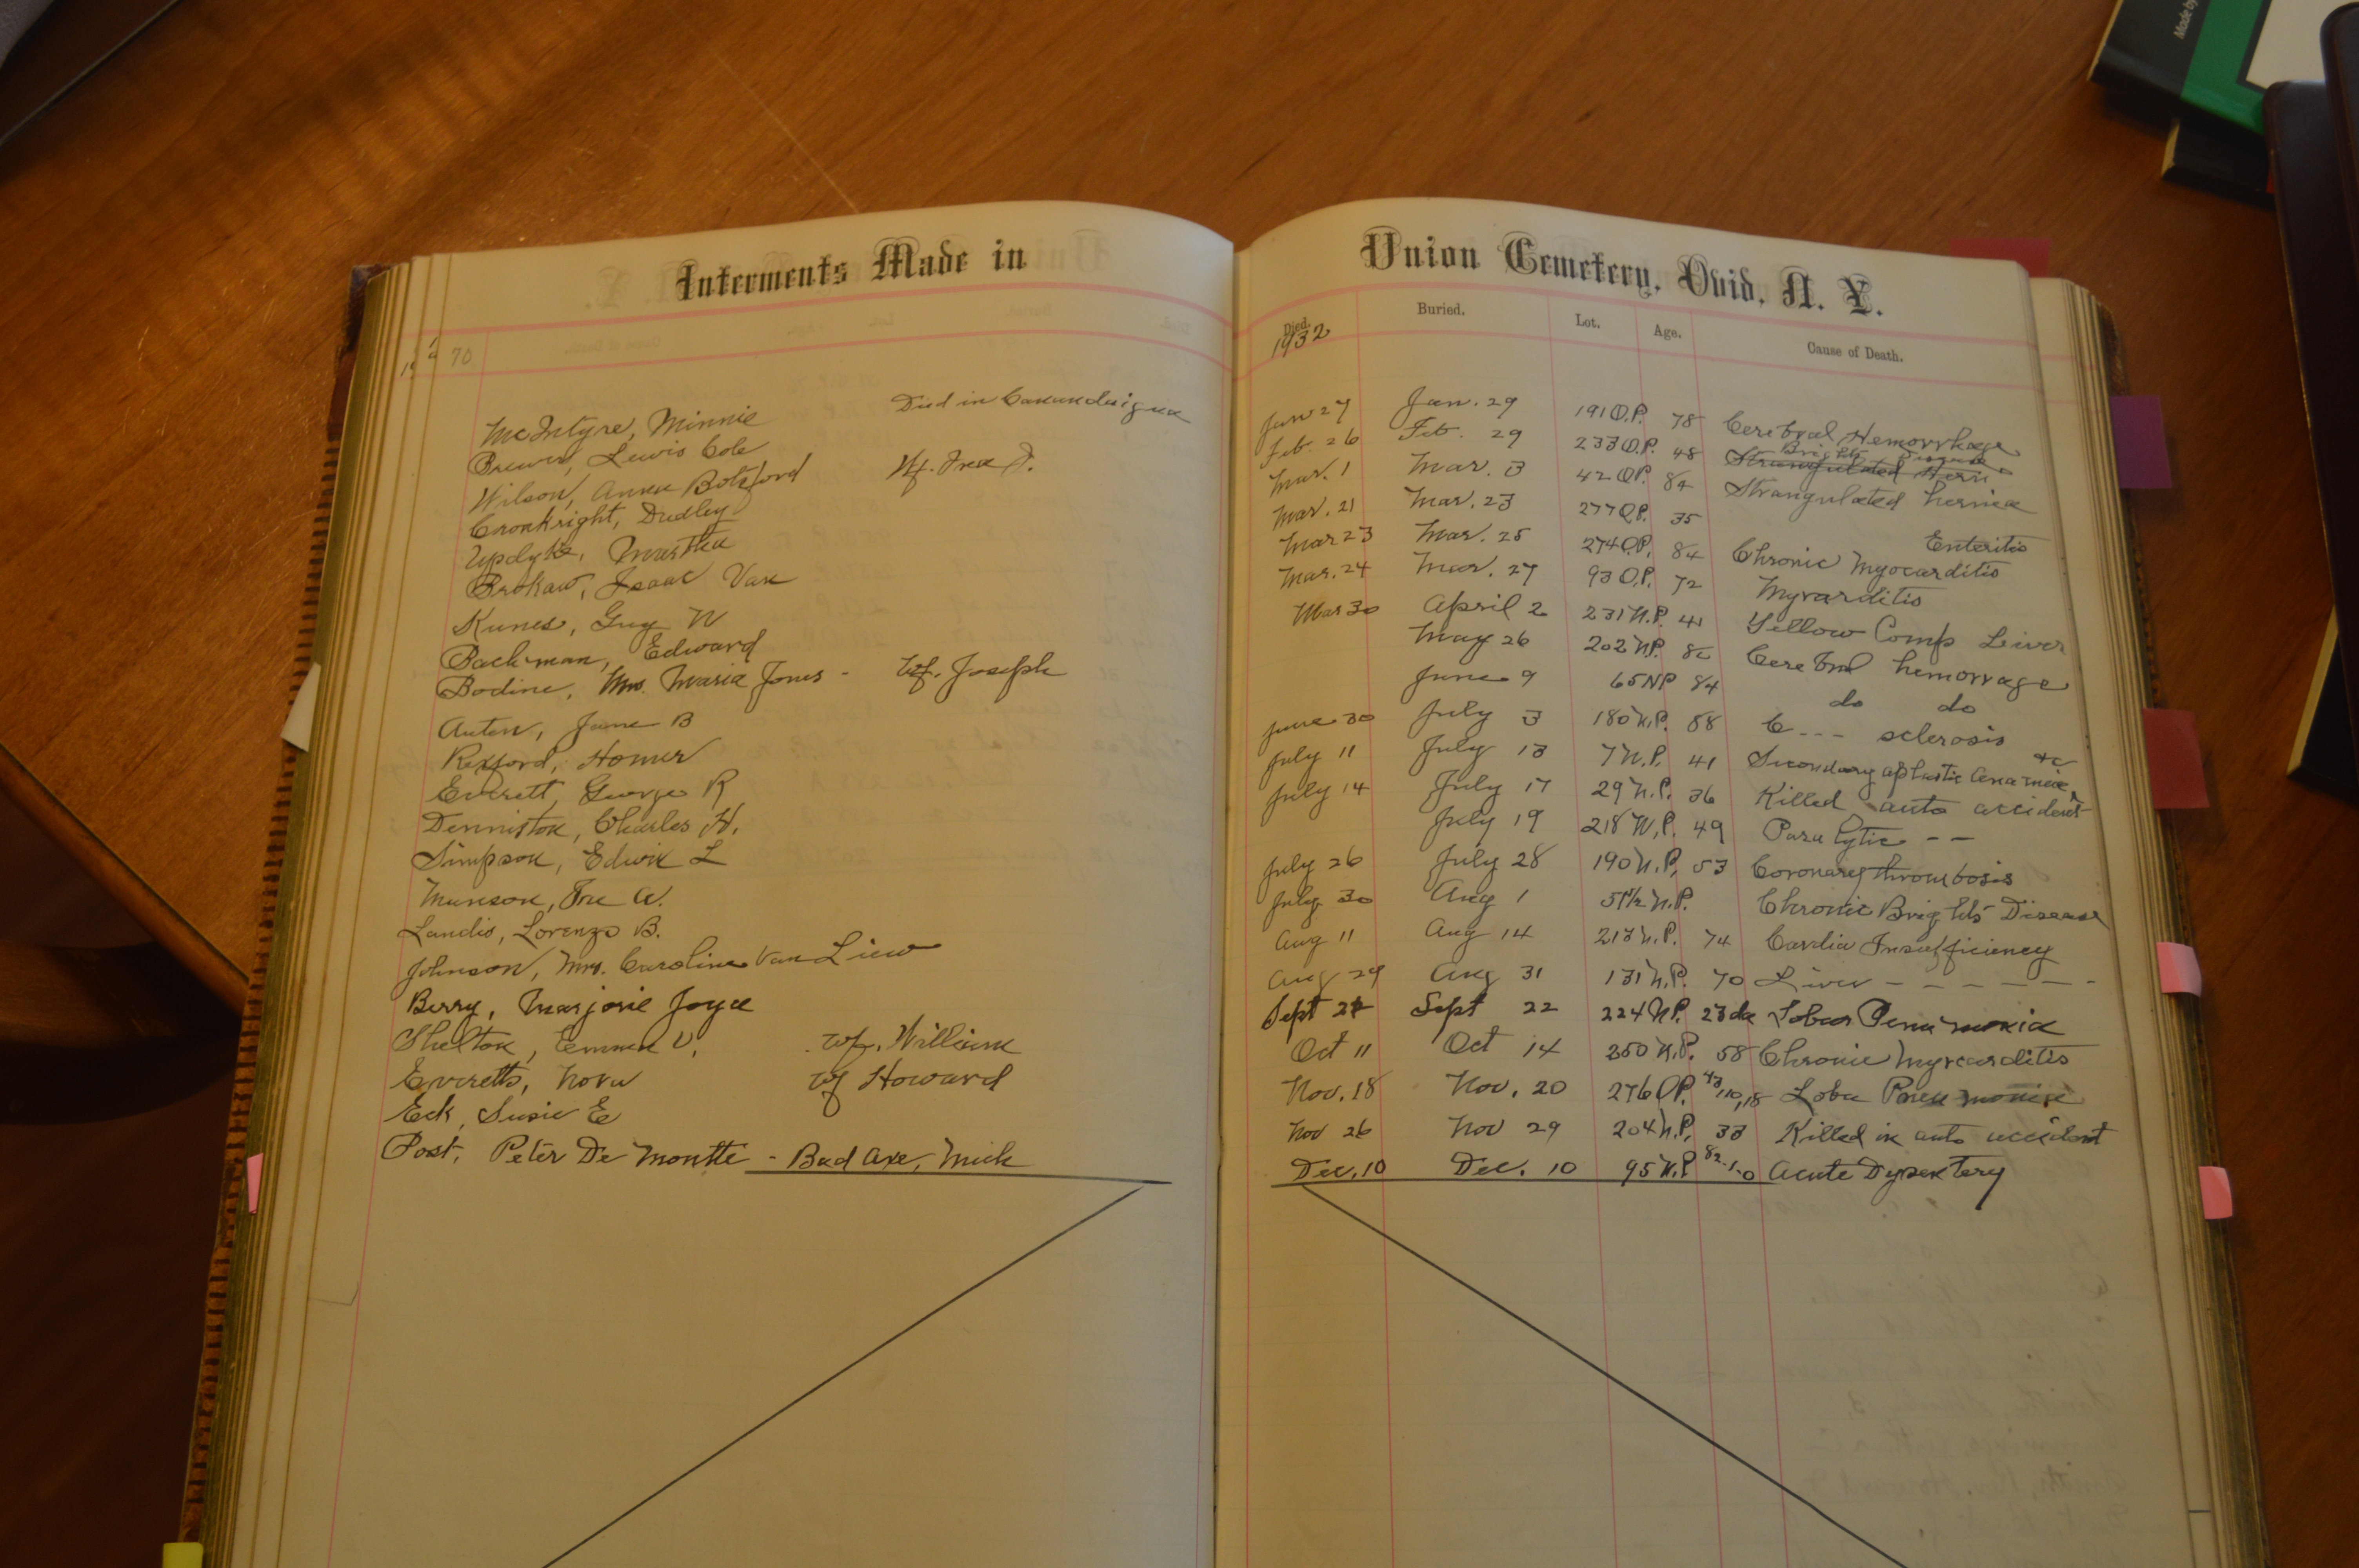 Made by
Interments Made in
70
McIntyre, Minnie Died in Canandaigua
Brewer, Lewis Cole
Wilson, Anna Botsford Wf. Ira J.
Cronkright, Dudley
Updyke, Martha
Brokaw, Isaac Van
Kunes, Guy W
Bachman, Edward
Bodine, Mrs. Maria Jones - Wf. Joseph
Auten, Jane B
Rexford, Homer
Everett, George R
Denniston, Charles H.
Simpson, Edwin L
Munson, Ira A.
Landis, Lorenzo B.
Johnson, Mrs. Caroline Van Liew
Berry, Marjorie Joyce
Shelton, Emma V. Wf. William
Everetts, Nora Wf Howard
Eck, Susie E
Post, Peter De Montte - Bad Axe, Mich
Union Cemetery, Ovid, N. Y.
Died. Buried. Lot. Age. Cause of Death.
1932
Jan 27 Jan. 29 191 O.P. 78 Cerebral Hemorrhage
Feb. 26 Feb. 29 233 O.P. 48 Brights Disease
Strangulated Hern
Mar. 1 Mar. 3 42 O.P. 84 Strangulated hernia
Mar. 21 Mar. 23 277 O.P. 35 Enteritis
Mar 23 Mar. 25 274 O.P. 84 Chronic Myocarditis
Mar. 24 Mar. 27 93 O.P. 72 Myocarditis
Mar 30 April 2 231 N.P. 41 Yellow Comp Liver
May 26 202 N.P. Cerebral hemorrage
June 9 65 NP 84 do do
June 30 July 3 180 N.P. 88 C - - - sclerosis
July 11 July 13 7 N.P. 41 Secondary aplastic anaemia &c
July 14 July 17 29 N.P. 36 Killed auto accident
July 19 218 N.P. 49 Paralytic - -
July 26 July 28 190 N.P. 53 Coronary thrombosis
July 30 Aug 1 51 1/2 N.P. Chronic Brights Disease
Aug 11 Aug 14 213 N.P. 74 Cardia Insufficiency
Aug 29 Aug 31 131 N.P. 70 Liver - - - - - -
Sept 21 Sept 22 224 N.P. 23 da Lobar Penumonia
Oct 11 Oct 14 250 N.P. 58 Chronic Myocarditis
Nov. 18 Nov. 20 276 O.P. 43,10,18 Loba Pneumonia
Nov 26 Nov 29 204 N.P. 33 Killed in auto accident
Dec. 10 Dec. 10 95 N.P 82-1-0 Acute Dysentery